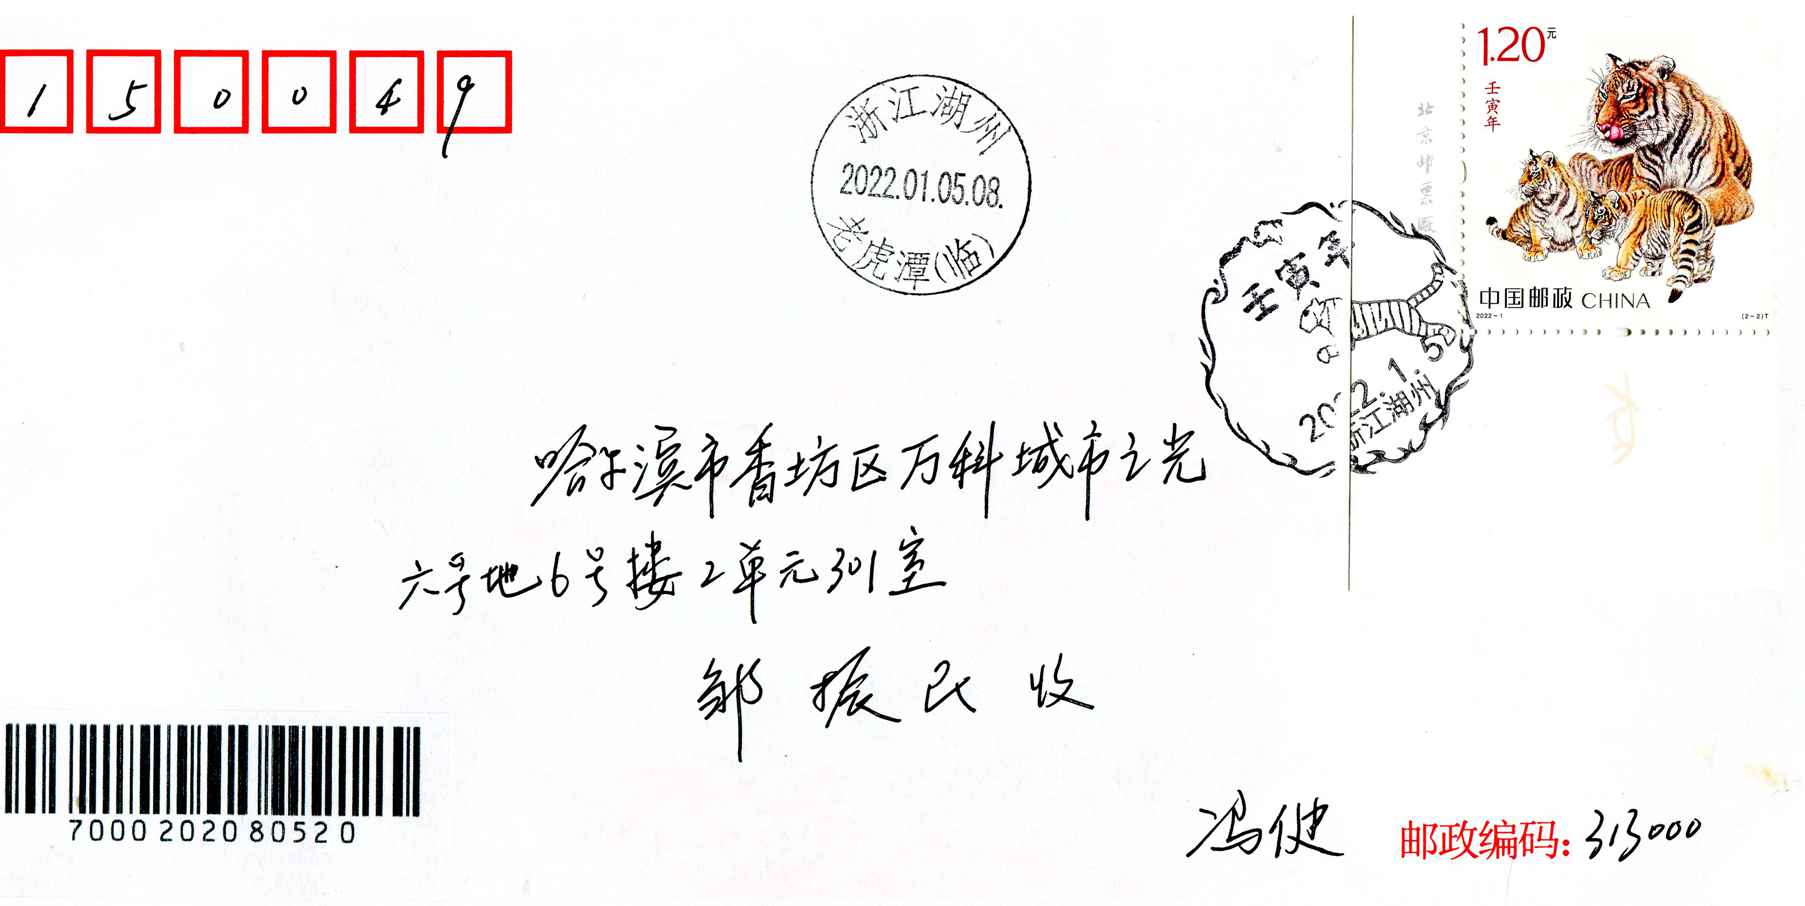 150049
浙江湖州
2022.01.05.08.
老虎潭(临)
1.20元
壬寅年
北京邮票厂
中国邮政 CHINA
2022-1
(2-2)T
壬寅年
2022.1.5
浙江湖州
哈尔滨市香坊区万科城市之光
六号地6号楼2单元301室
邹振民 收
7000202080520
冯健
邮政编码: 313000